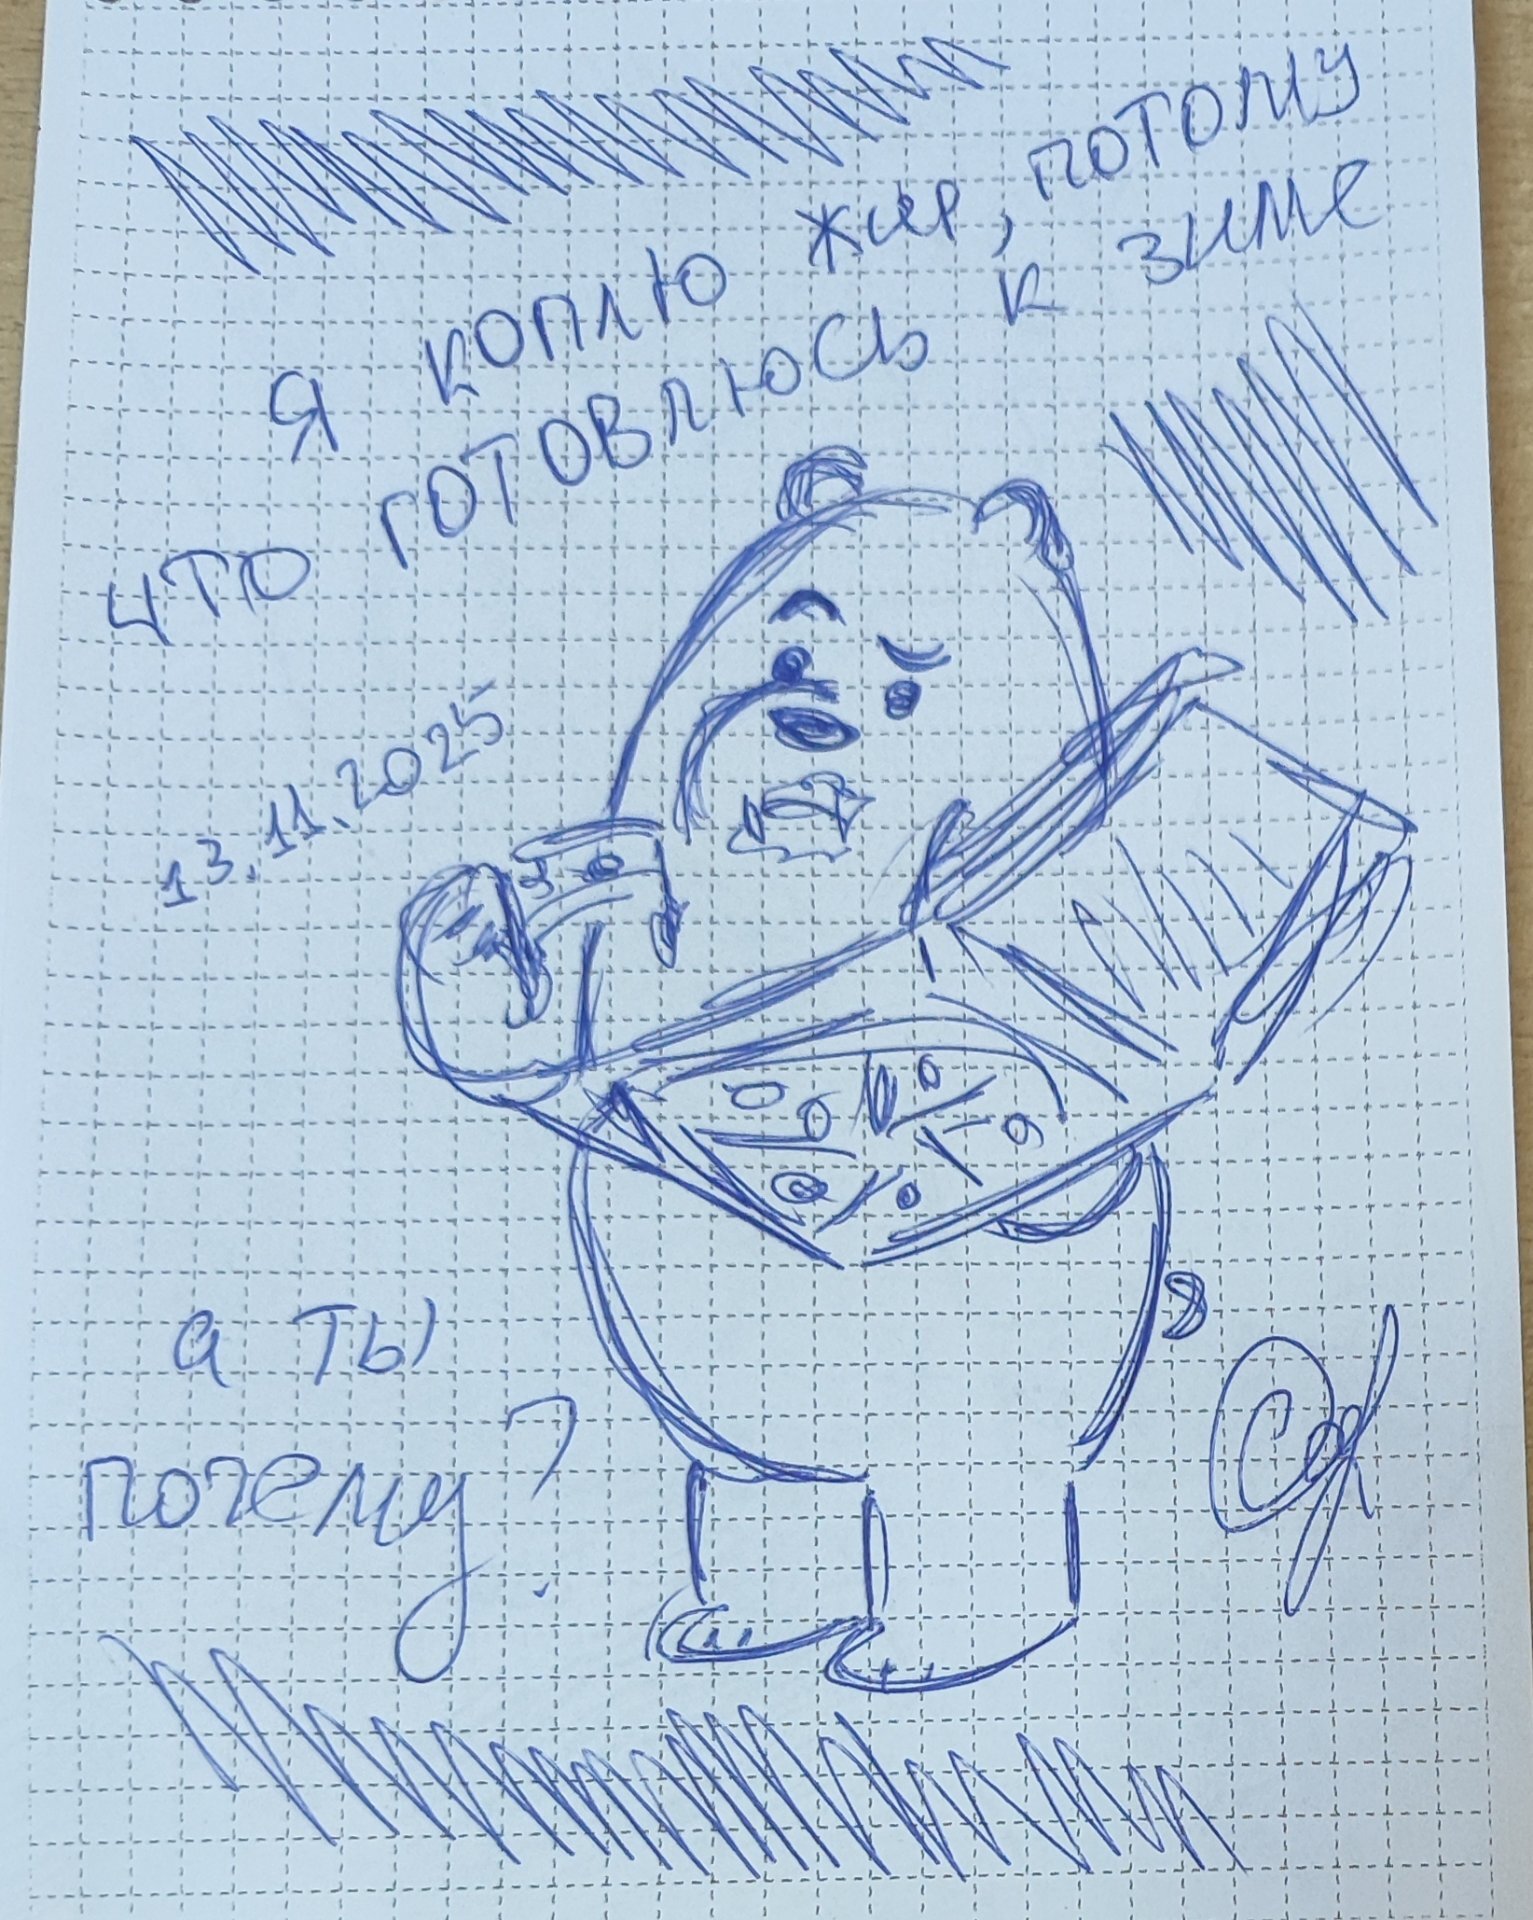 я коплю жир, потому
что готовлюсь к зиме
13.11.2025
а ты
почему?